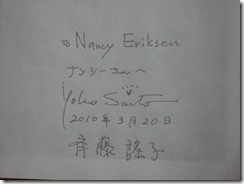 To Nancy Eriksen
ナンシーさんへ
Yoko Saito
2010年3月20日
斉藤謠子